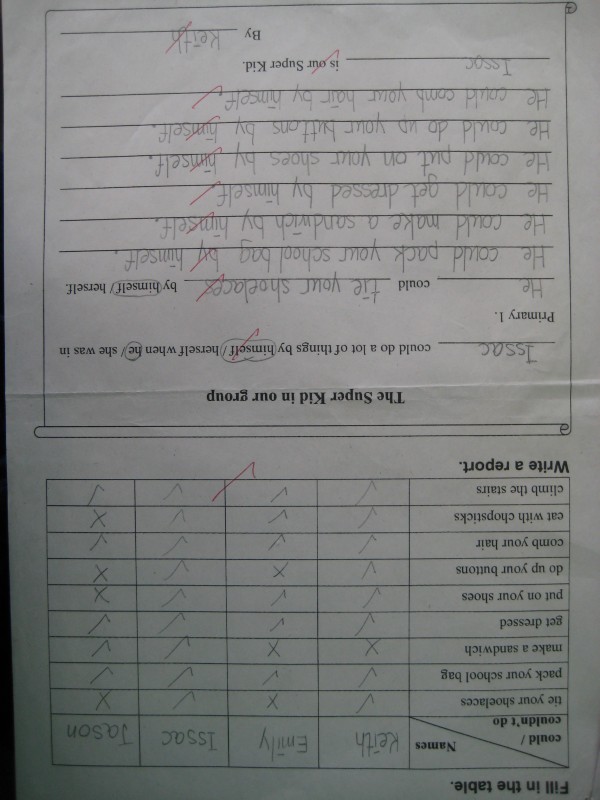 Fill in the table.
could / couldn't do Names Keith Emily Issac Jason
tie your shoelaces
pack your school bag
make a sandwich
get dressed
put on your shoes
do up your buttons
comb your hair
eat with chopsticks
climb the stairs
Write a report.
The Super Kid in our group
Issac could do a lot of things by himself / herself when he / she was in
Primary 1.
He could tie your shoelaces by himself / herself.
He could pack your school bag by himself.
He could make a sandwich by himself.
He could get dressed by himself.
He could put on your shoes by himself.
He could do up your buttons by himself.
He could comb your hair by himself.
Issac is our Super Kid.
By Keith